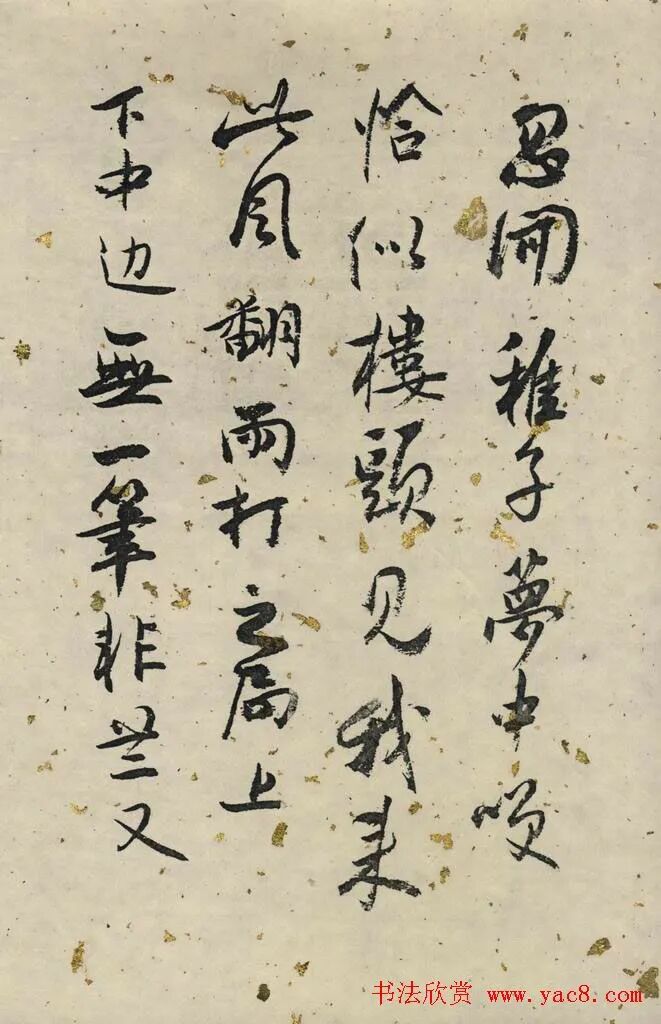 忽闻稚子夢中嘆
恰似樓頭见我来
此风翻雨打之局上
下中边無一筆非 又
书法欣赏 www.yac8.com